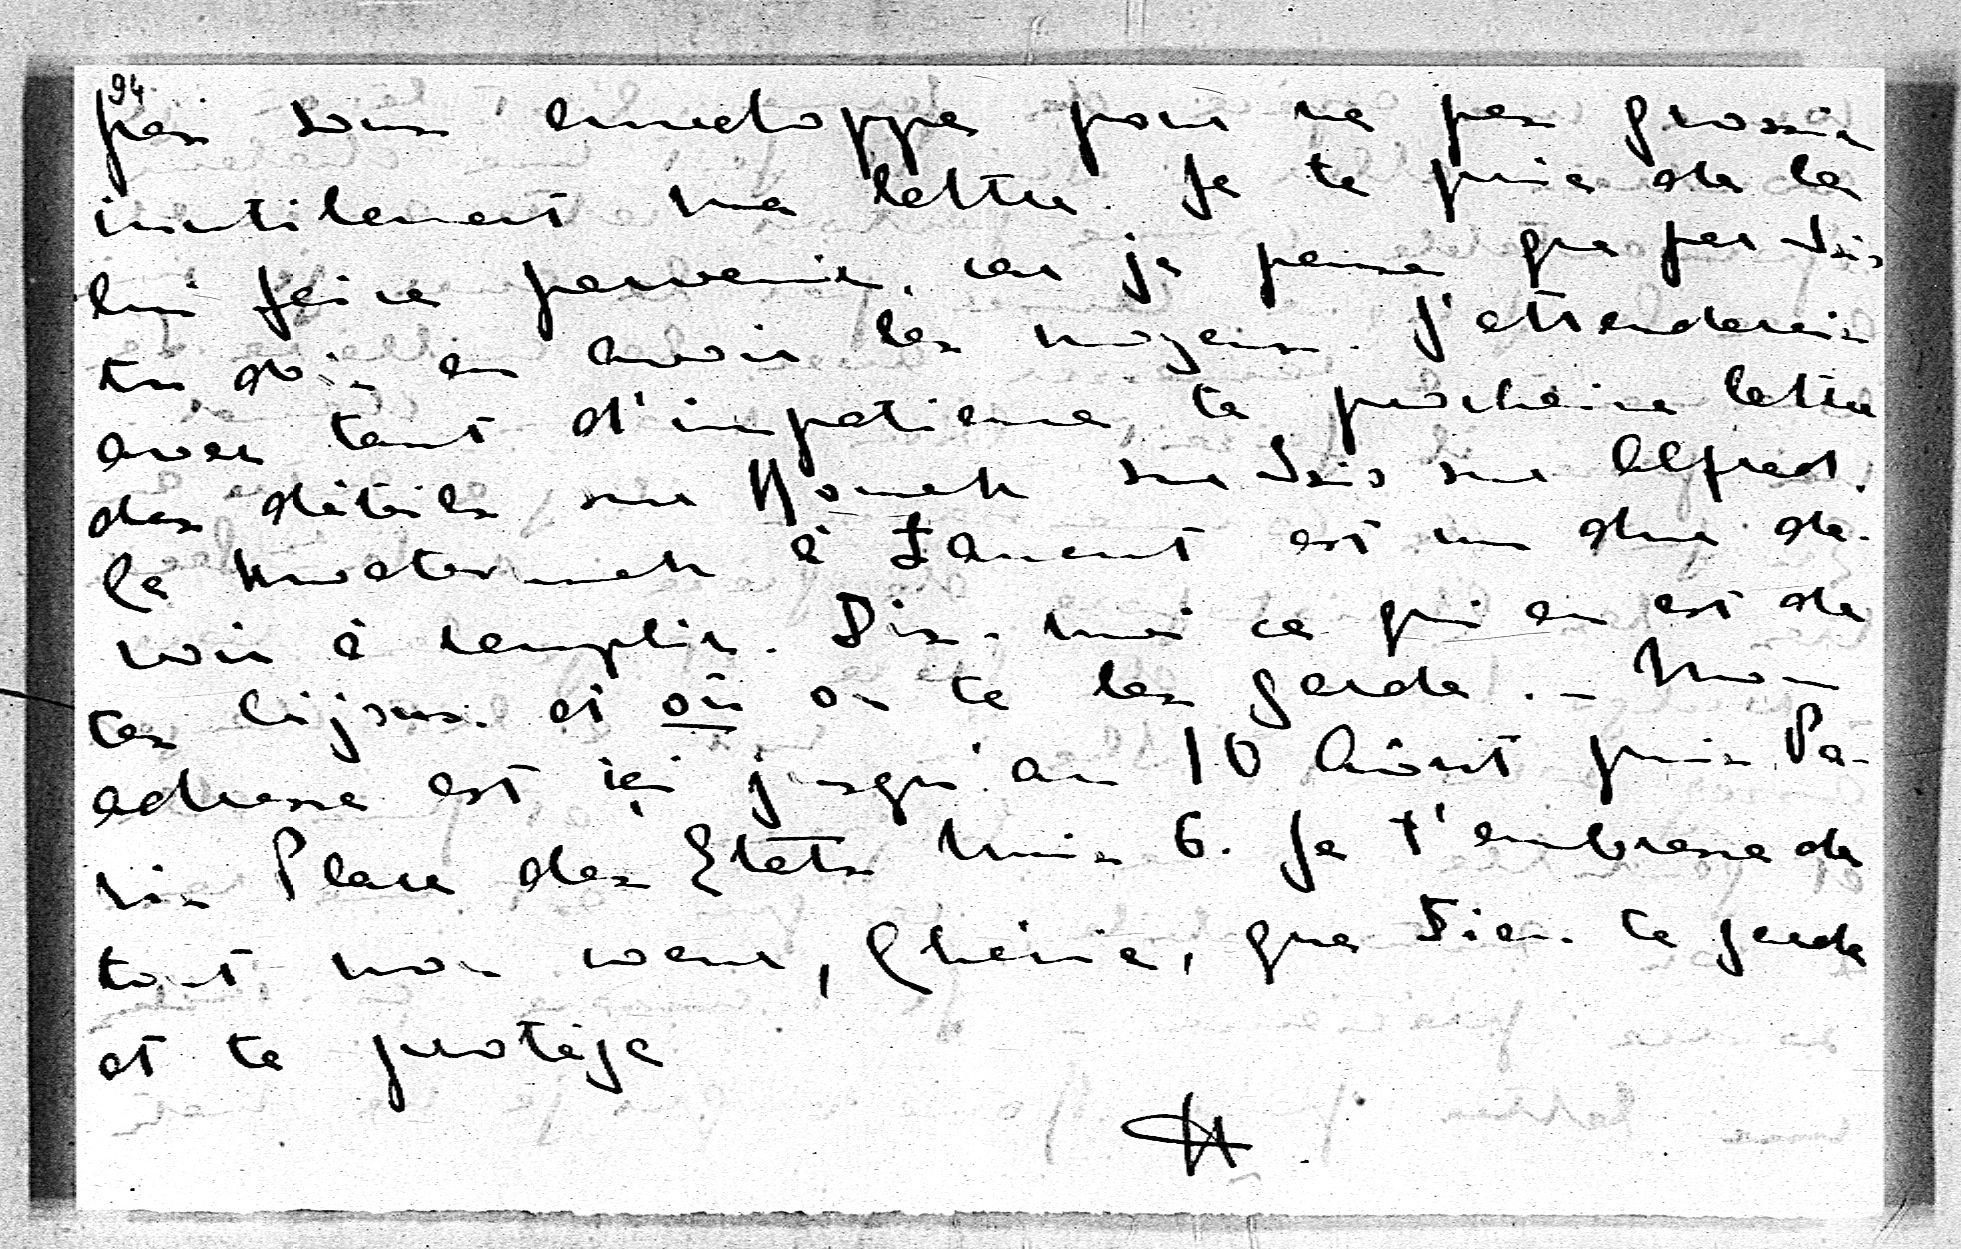 94.
pas sous enveloppe pour ne pas grossir
inutilement ma lettre. Je te prie de la
lui faire parvenir, car je pense que
tu dois en avoir les moyens. J'attenderais
avec tant d'impatience ta prochaine lettre
des détails sur sur Alfred.
la à est un dur de-
voir à remplir. Dis-moi ce qui en est de
tes bijoux. et où on te les garde. - Mon
adresse est ici jusqu'au 10 Août puis Pa-
ris Place des Etats Unis 6. Je t'embrasse de
tout mon coeur, Chérie, que Dieu te garde
et te protège